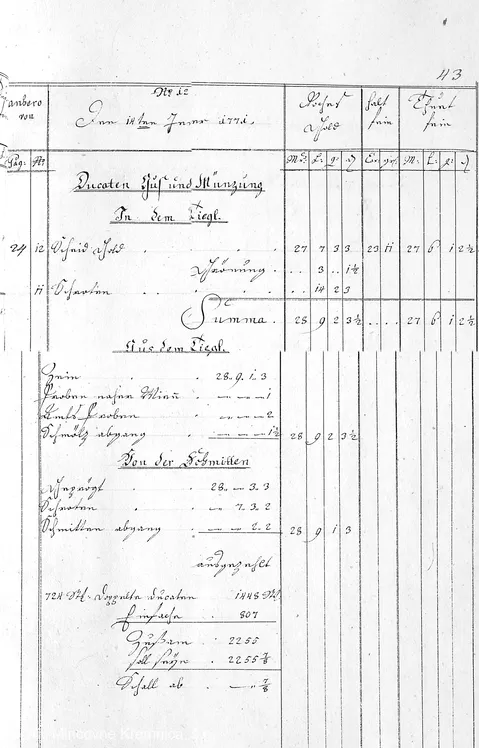 43
anbero von
No 12
Den 14ten Jener 1771.
Roches Gold
halt fein
Thuet fein
Pag: No
M: L: q: d
Cr: gr:
M: L: q: d
Ducaten Gus und Münzung
In dem Tiegl.
24 12 Scheid Gold . . . 27 7 3 3 23 11 27 6 1 2½
Chrönung . . . 3 . . 1½
11 Schroten . . . 14 2 3
Summa. 28 9 2 3½ . . . . 27 6 1 2½
Aus dem Tiegl.
Zein . . 28. 9. 1. 3
Proben naher Wienn . — — — 1
Amts Proben . — — — 2
Schmölz abgang . — — — 1½ 28 9 2 3½
Von der Schmitten
Geprögt . . 28. — 3. 3
Schroten . . — 7. 3. 2
Schmitten abgang . — — 2. 2 28 9 1 3
ausgezehlt
724 Stk. Doppelte Ducaten 1448 Stk
Einfache . 807
Zusam. . 2255
soll seyn . 2255 7/8
Schall ab . — 7/8
Mincovne Kremnica